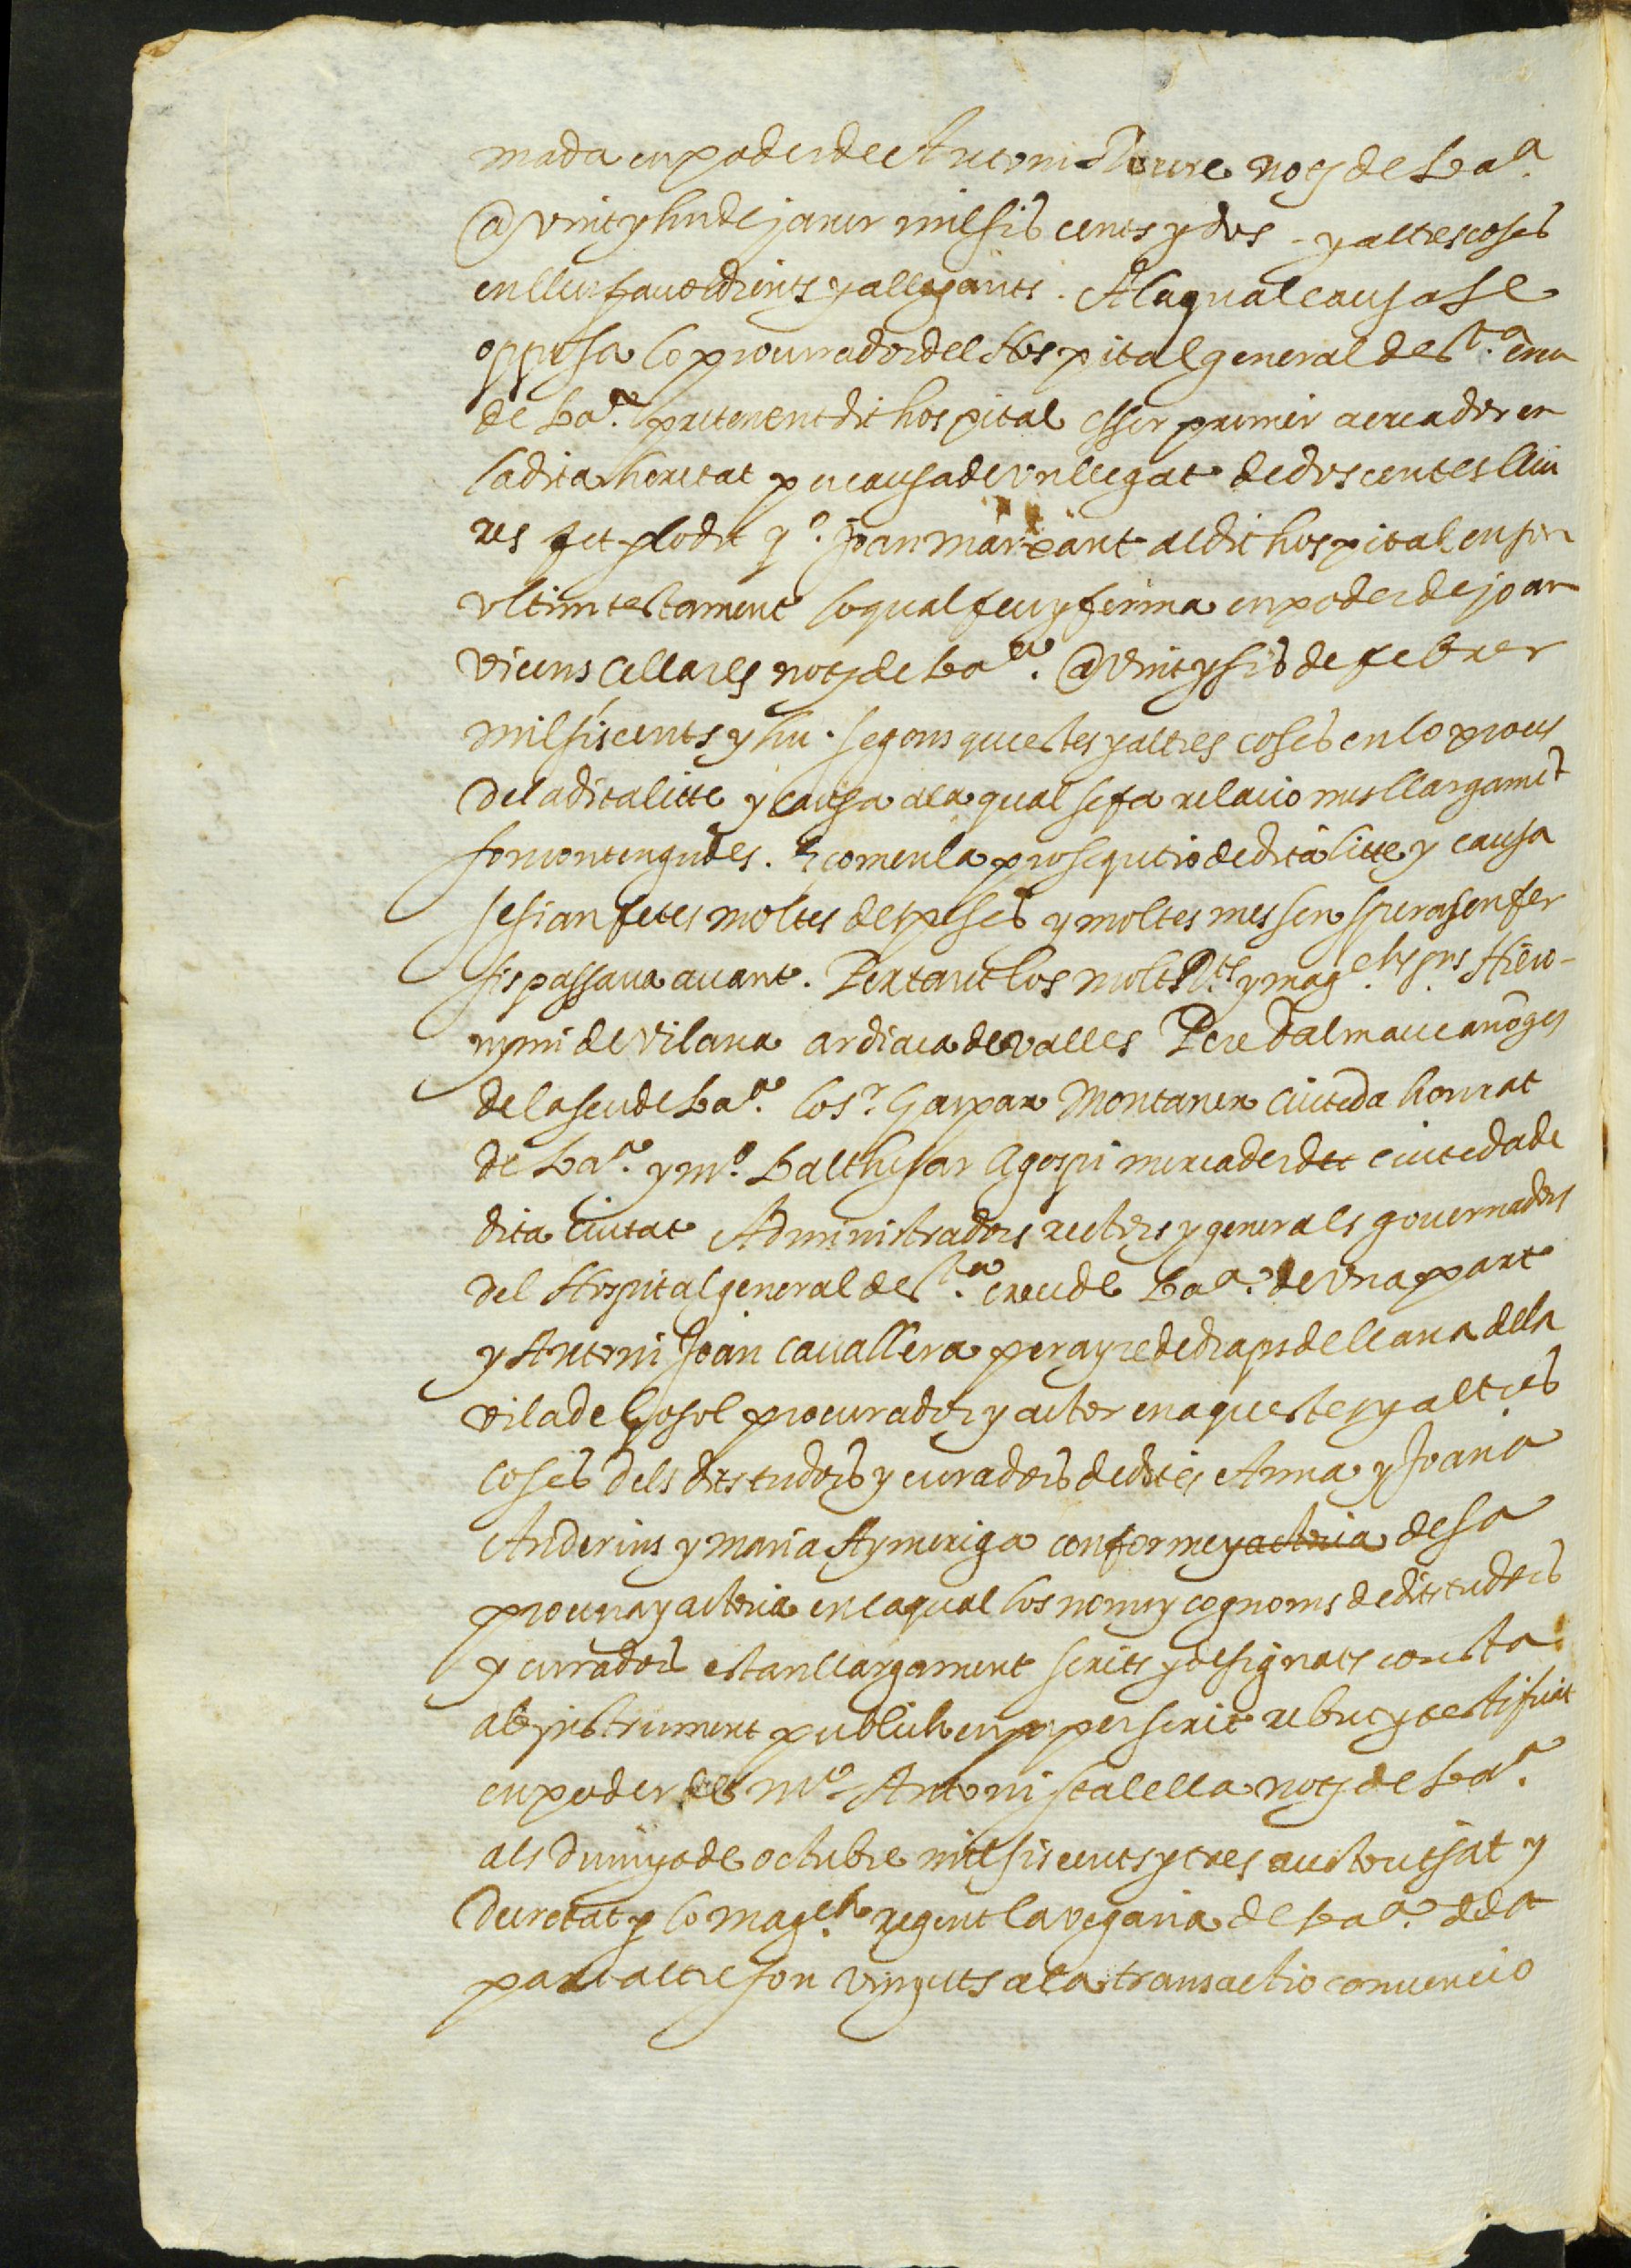 mada en poder de Antoni Roure not. de Bar.ª
@ vint y hu de janer mil sis cents y dos - y altres coses
en llur favor dients y allegants. A la qual causa se
opposa lo procurador del Hospital general de S.ta creu
de Bar.ª pretenent dit hospital esser primer acreador en
la dita heretat per causa de un llegat de dos centes lliu
res fet p lo dit q.º Joan Marçant al dit hospital en son
ultim testament lo qual feu y ferma en poder de joan
vicens Cellarés not. de Bar.ª @ vint y sis de febrer
mil sis cents y hu. segons questes y altres coses en lo proces
de la dita litte y causa a la qual se fa relatio mes llargamet
son contengudes. E com en la prosequtio de dita litte y causa
se sian fetes moltes despeses y moltes mes sen speravan fer
sis passava avant. Per tant los molts R.ts y mag.chs s.ors Hiero-
nymi de Vilana ardiaca de valles Pere Dalmau canonges
de la seu de Bar.ª los.r Gaspar Montaner Ciuteda honrat
de Bar.ª y m.º Balthesar Agospi mercader det ciuteda de
dita ciutat Administradors rectors y generals governadors
del Hospital general de S.ta creu de Bar.ª de una part
y Antoni Joan Cavallera perayre de draps de llana de la
vila de Gosol procurador y actor en aquestes y altres
coses dels dits tudors y curadors de dites Anna y Joana
Anderius y maria Aymeriga conforme y actoria de sa
procura y actoria en la qual los noms y cognoms de dits tudors
y curadors estan llargament scrits y designats consta
ab instrument publich en paper scrit rebut y testificat
en poder de m.º Antoni Scalella not. de Bar.ª
als de octubre mil sis cents y tres auctorisat y
decretat p lo mag.ch regent la vegaria de Bar.ª de la
part altre son vinguts a la transactio convencio